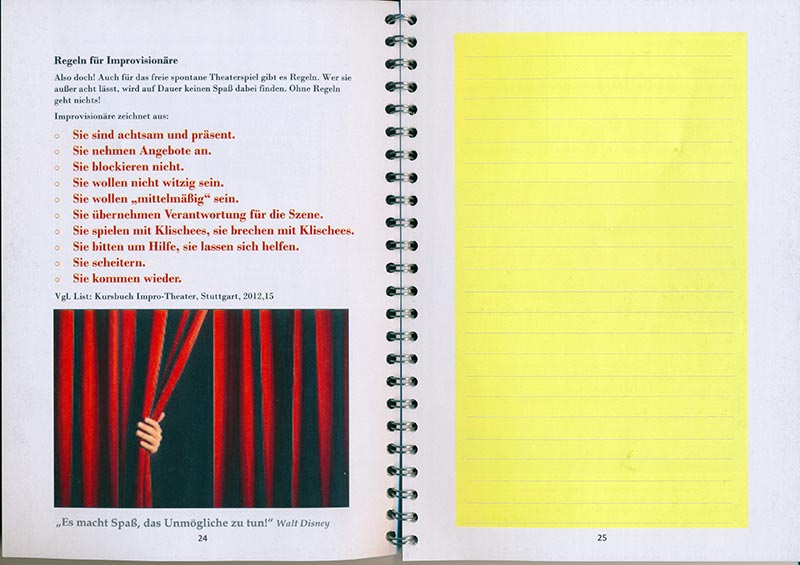 Regeln für Improvisionäre
Also doch! Auch für das freie spontane Theaterspiel gibt es Regeln. Wer sie
außer acht lässt, wird auf Dauer keinen Spaß dabei finden. Ohne Regeln
geht nichts!
Improvisionäre zeichnet aus:
○ Sie sind achtsam und präsent.
○ Sie nehmen Angebote an.
○ Sie blockieren nicht.
○ Sie wollen nicht witzig sein.
○ Sie wollen „mittelmäßig“ sein.
○ Sie übernehmen Verantwortung für die Szene.
○ Sie spielen mit Klischees, sie brechen mit Klischees.
○ Sie bitten um Hilfe, sie lassen sich helfen.
○ Sie scheitern.
○ Sie kommen wieder.
Vgl. List: Kursbuch Impro-Theater, Stuttgart, 2012,15
„Es macht Spaß, das Unmögliche zu tun!“ Walt Disney
24
25